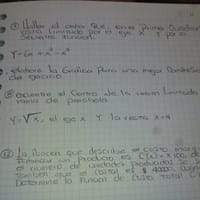 ① Hallar el area que, en el Primer Cuadrante
esta limitada por el eje X y por la
siguiente funcion.
Y=6x+x²-x³
elabore la Grafica Para una mejor
de area
② encuentre el Centro de la region limitada
rama de parabola
Y=√X, el eje X Y la recta X=4
la funcion que describe el costo marg
Producto es
el numero de unidades producidas
que el costo el $ 4000
Determine la Funcion de Costo Total C